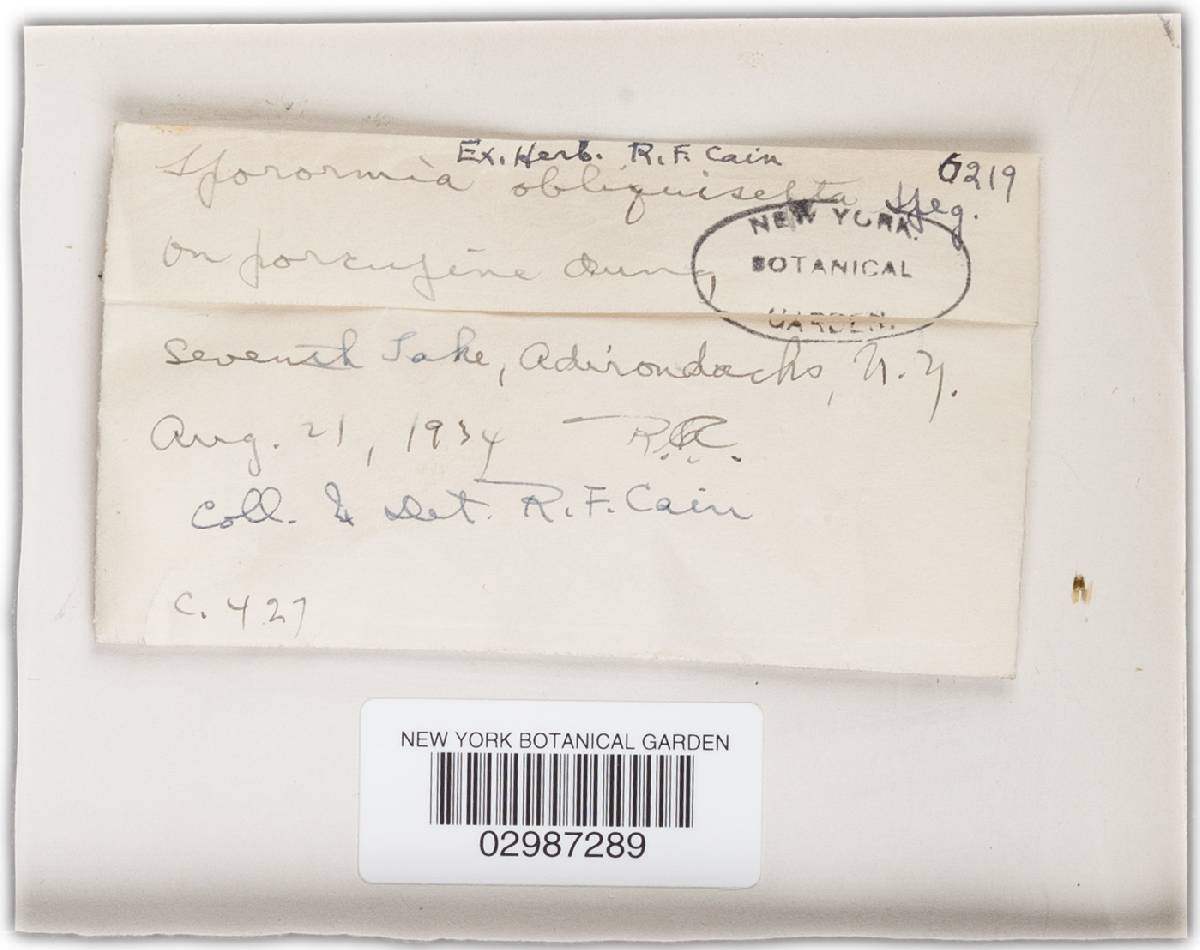 Ex. Herb. R. F. Cain
6219
Sporormia obliquisepta Speg.
NEW YORK
BOTANICAL
GARDEN.
on porcupine dung,
Seventh Lake, Adirondacks, N.Y.
Aug. 21, 1934
Coll. & Det. R. F. Cain
C. 427
NEW YORK BOTANICAL GARDEN
02987289